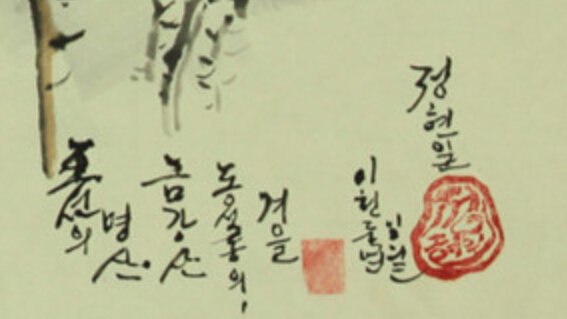 조선의
명산
금강산
동석동의,
겨울
이천둘년
일월
정현일